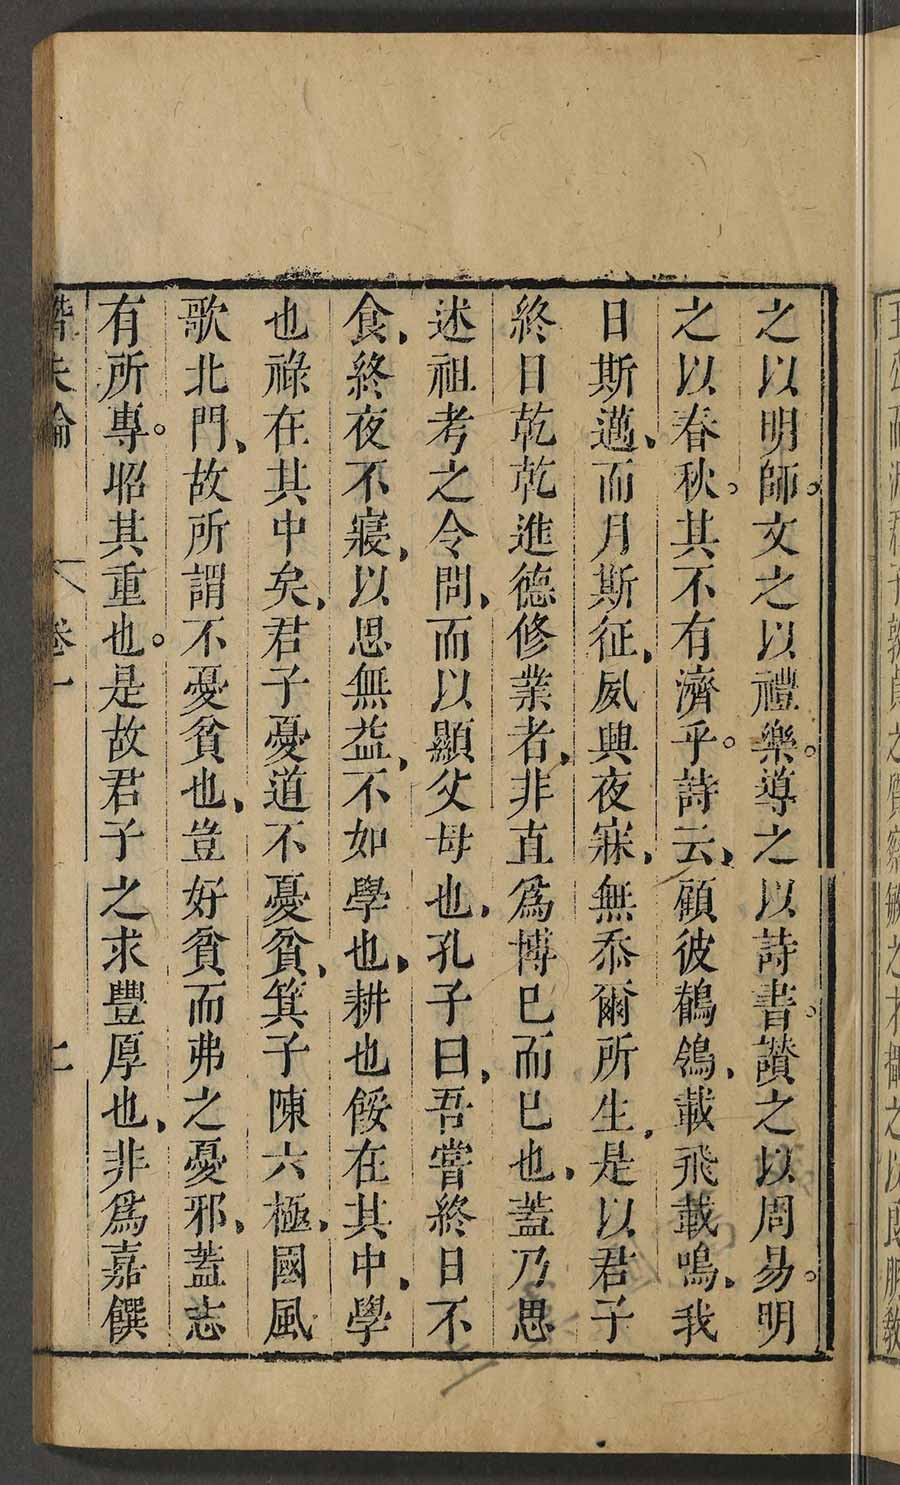 王公而況君子敦貞之質察敏之才攝之以良朋教
之以明師。文之以禮樂。導之以詩書。讚之以周易。明
之以春秋。其不有濟乎。詩云、顧彼鶺鴒、載飛載鳴、我
日斯邁、而月斯征、夙興夜寐、無忝爾所生、是以君子
終日乾乾進德修業者、非直爲博已而已也、蓋乃思
述祖考之令問、而以顯父母也、孔子曰、吾嘗終日不
食、終夜不寢、以思無益、不如學也、耕也餒在其中、學
也祿在其中矣、君子憂道不憂貧、箕子陳六極、國風
歌北門、故所謂不憂貧也、豈好貧而弗之憂邪、蓋志
有所專。昭其重也。是故君子之求豐厚也、非爲嘉饌
潛夫論 卷一